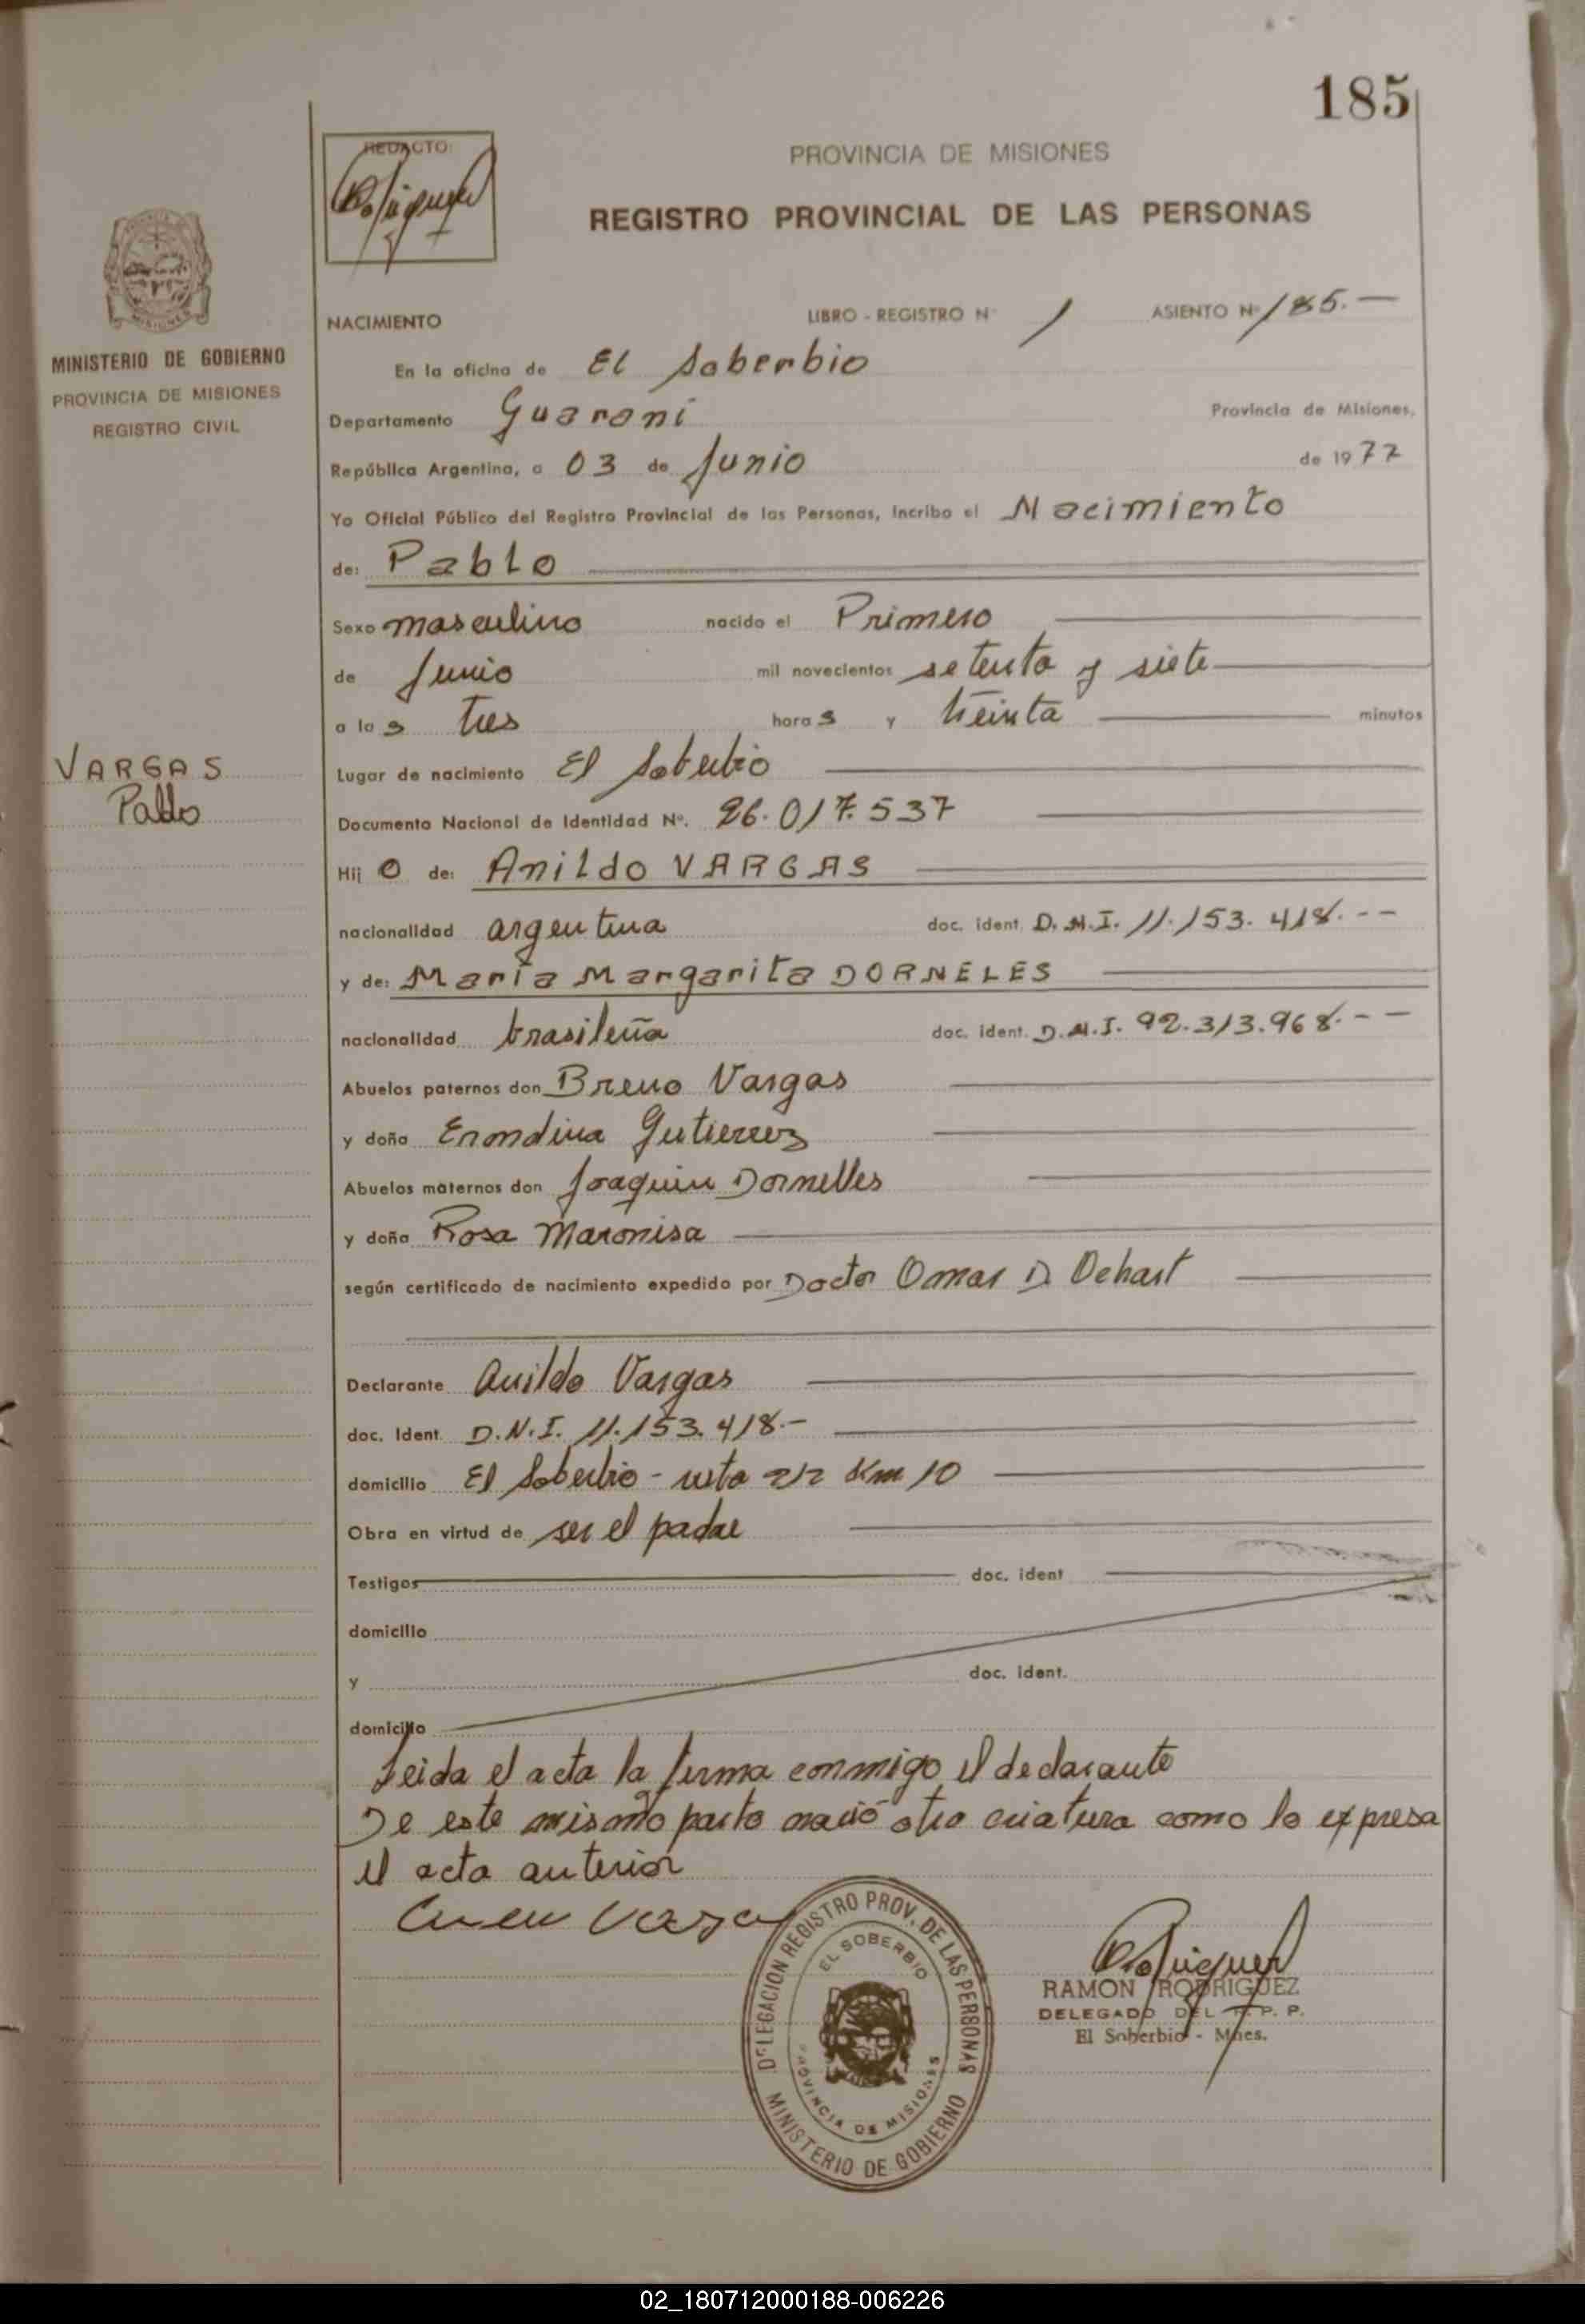 185
REDACTO:
PROVINCIA DE MISIONES
REGISTRO PROVINCIAL DE LAS PERSONAS
MISIONES
MINISTERIO DE GOBIERNO
PROVINCIA DE MISIONES
REGISTRO CIVIL
NACIMIENTO LIBRO - REGISTRO Nº 1 ASIENTO Nº 185.—
En la oficina de El Soberbio
Departamento Guaraní Provincia de Misiones,
República Argentina, a 03 de Junio de 1977
Yo Oficial Público del Registro Provincial de las Personas, incribo el Nacimiento
de: Pablo
Sexo masculino nacido el Primero
de Junio mil novecientos setenta y siete
a las tres horas y treinta minutos
VARGAS
Pablo
Lugar de nacimiento El Soberbio
Documento Nacional de Identidad Nº. 26.017.537
Hijo de: Anildo VARGAS
nacionalidad argentina doc. ident. D.N.I. 11.153.418.--
y de: María Margarita DORNELES
nacionalidad brasileña doc. ident. D.N.I. 92.313.968.--
Abuelos paternos don Breno Vargas
y doña Erondina Gutierrez
Abuelos maternos don Joaquin Dornelles
y doña Rosa Maronisa
según certificado de nacimiento expedido por Doctor Omar D. Dehart
Declarante Anildo Vargas
doc. Ident. D.N.I. 11.153.418.-
domicilio El Soberbio - ruta 212 Km 10
Obra en virtud de ser el padre
Testigos doc. ident
domicilio
y doc. ident.
domicilio
Leida el acta la firma conmigo el declarante
De este mismo parto nació otra criatura como lo expresa
el acta anterior
DELEGACION REGISTRO PROV. DE LAS PERSONAS
EL SOBERBIO
PROVINCIA DE MISIONES
MINISTERIO DE GOBIERNO
RAMON RODRIGUEZ
DELEGADO DEL R. P. P.
El Soberbio - Mnes.
02_180712000188-006226